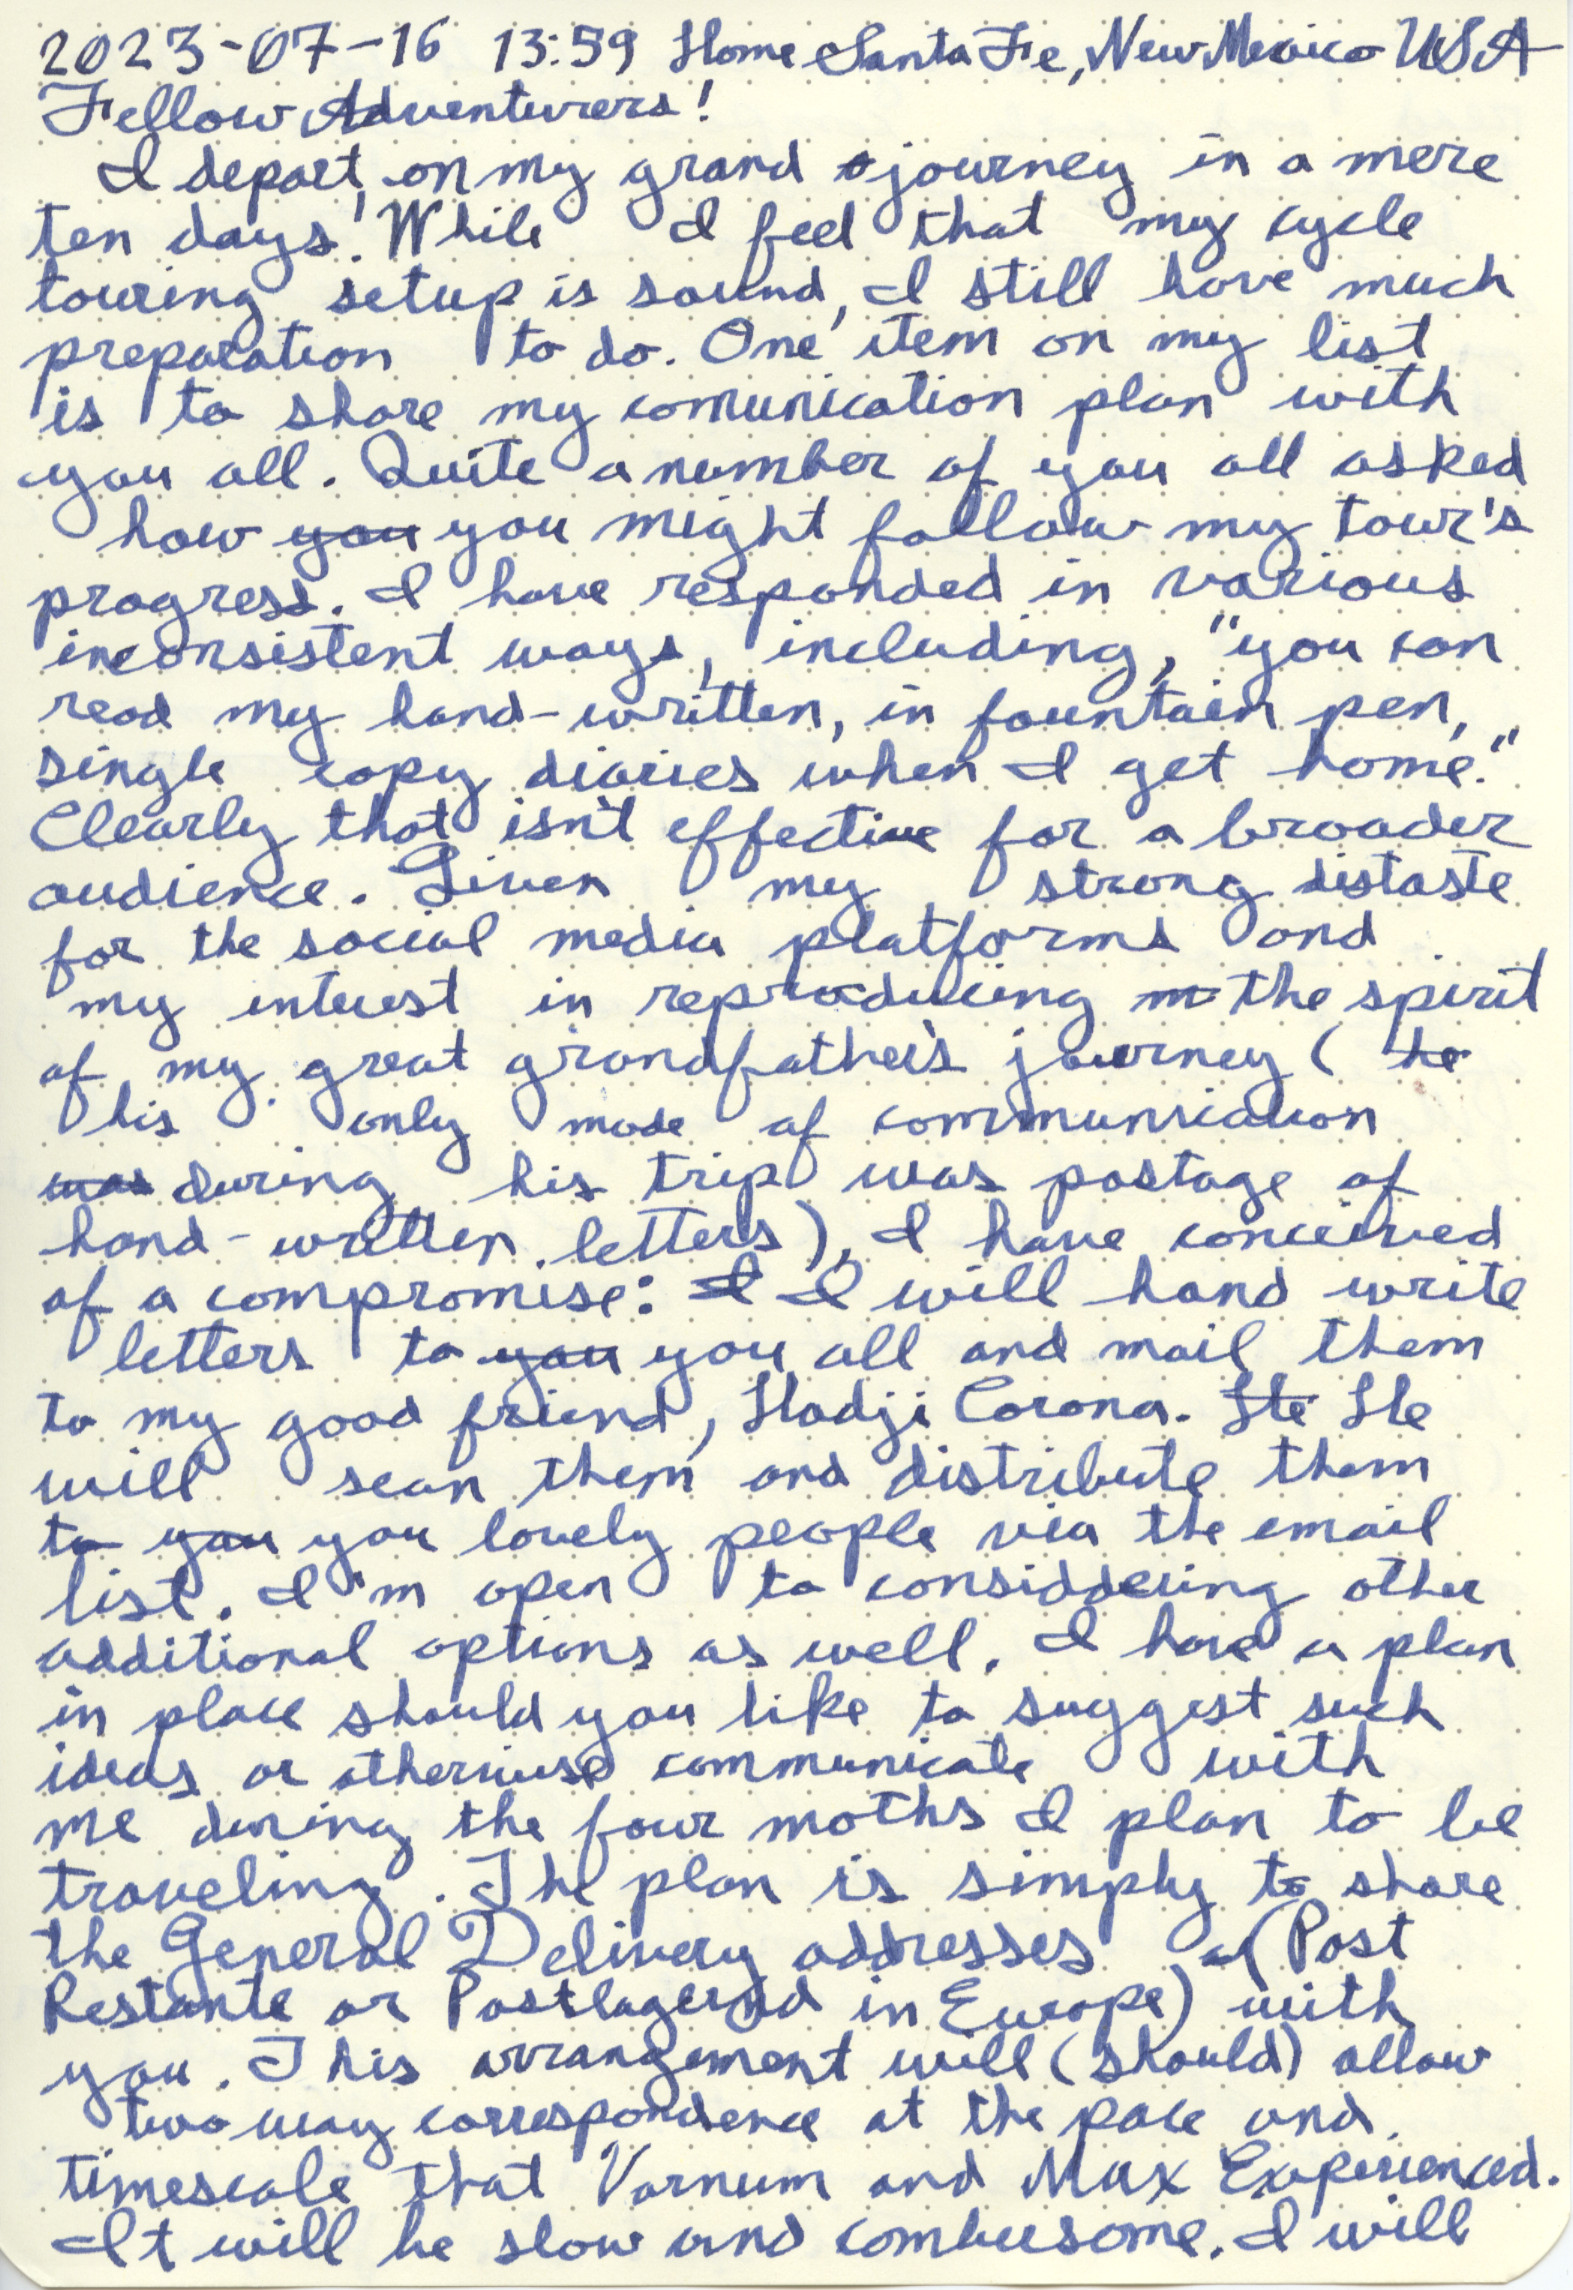 2023-07-16 13:59 Home Santa Fe, New Mexico USA
Fellow Adventurers!
I depart on my grand journey in a mere
ten days! While I feel that my cycle
touring setup is sound, I still have much
preparation to do. One item on my list
is to share my comunication plan with
you all. Quite a number of you all asked
how you you might follow my tour's
progress. I have responded in various
inconsistent ways, including, "you can
read my hand-written, in fountain pen,
single copy diaries when I get home."
Clearly that isn't effective for a broader
audience. Given my strong distaste
for the social media platforms and
my interest in reproducing the spirit
of my great grandfather's journey ( he
his only mode of communication
was during his trip was postage of
hand-written letters), I have conceived
of a compromise: I I will hand write
letters to you you all and mail them
to my good friend, Hadji Corona. He He
will scan them and distribute them
to you you lovely people via the email
list. I'm open to considdering other
additional options as well. I have a plan
in place should you like to suggest such
ideas or otherwise communicate with
me during the four moths I plan to be
traveling. The plan is simply to share
the General Delivery addresses (Post
Restante or Postlagernd in Europe) with
you. This arrangement will (should) allow
two way correspondence at the pace and
timescale that Varnum and Max Experienced.
It will be slow and combursome. I will